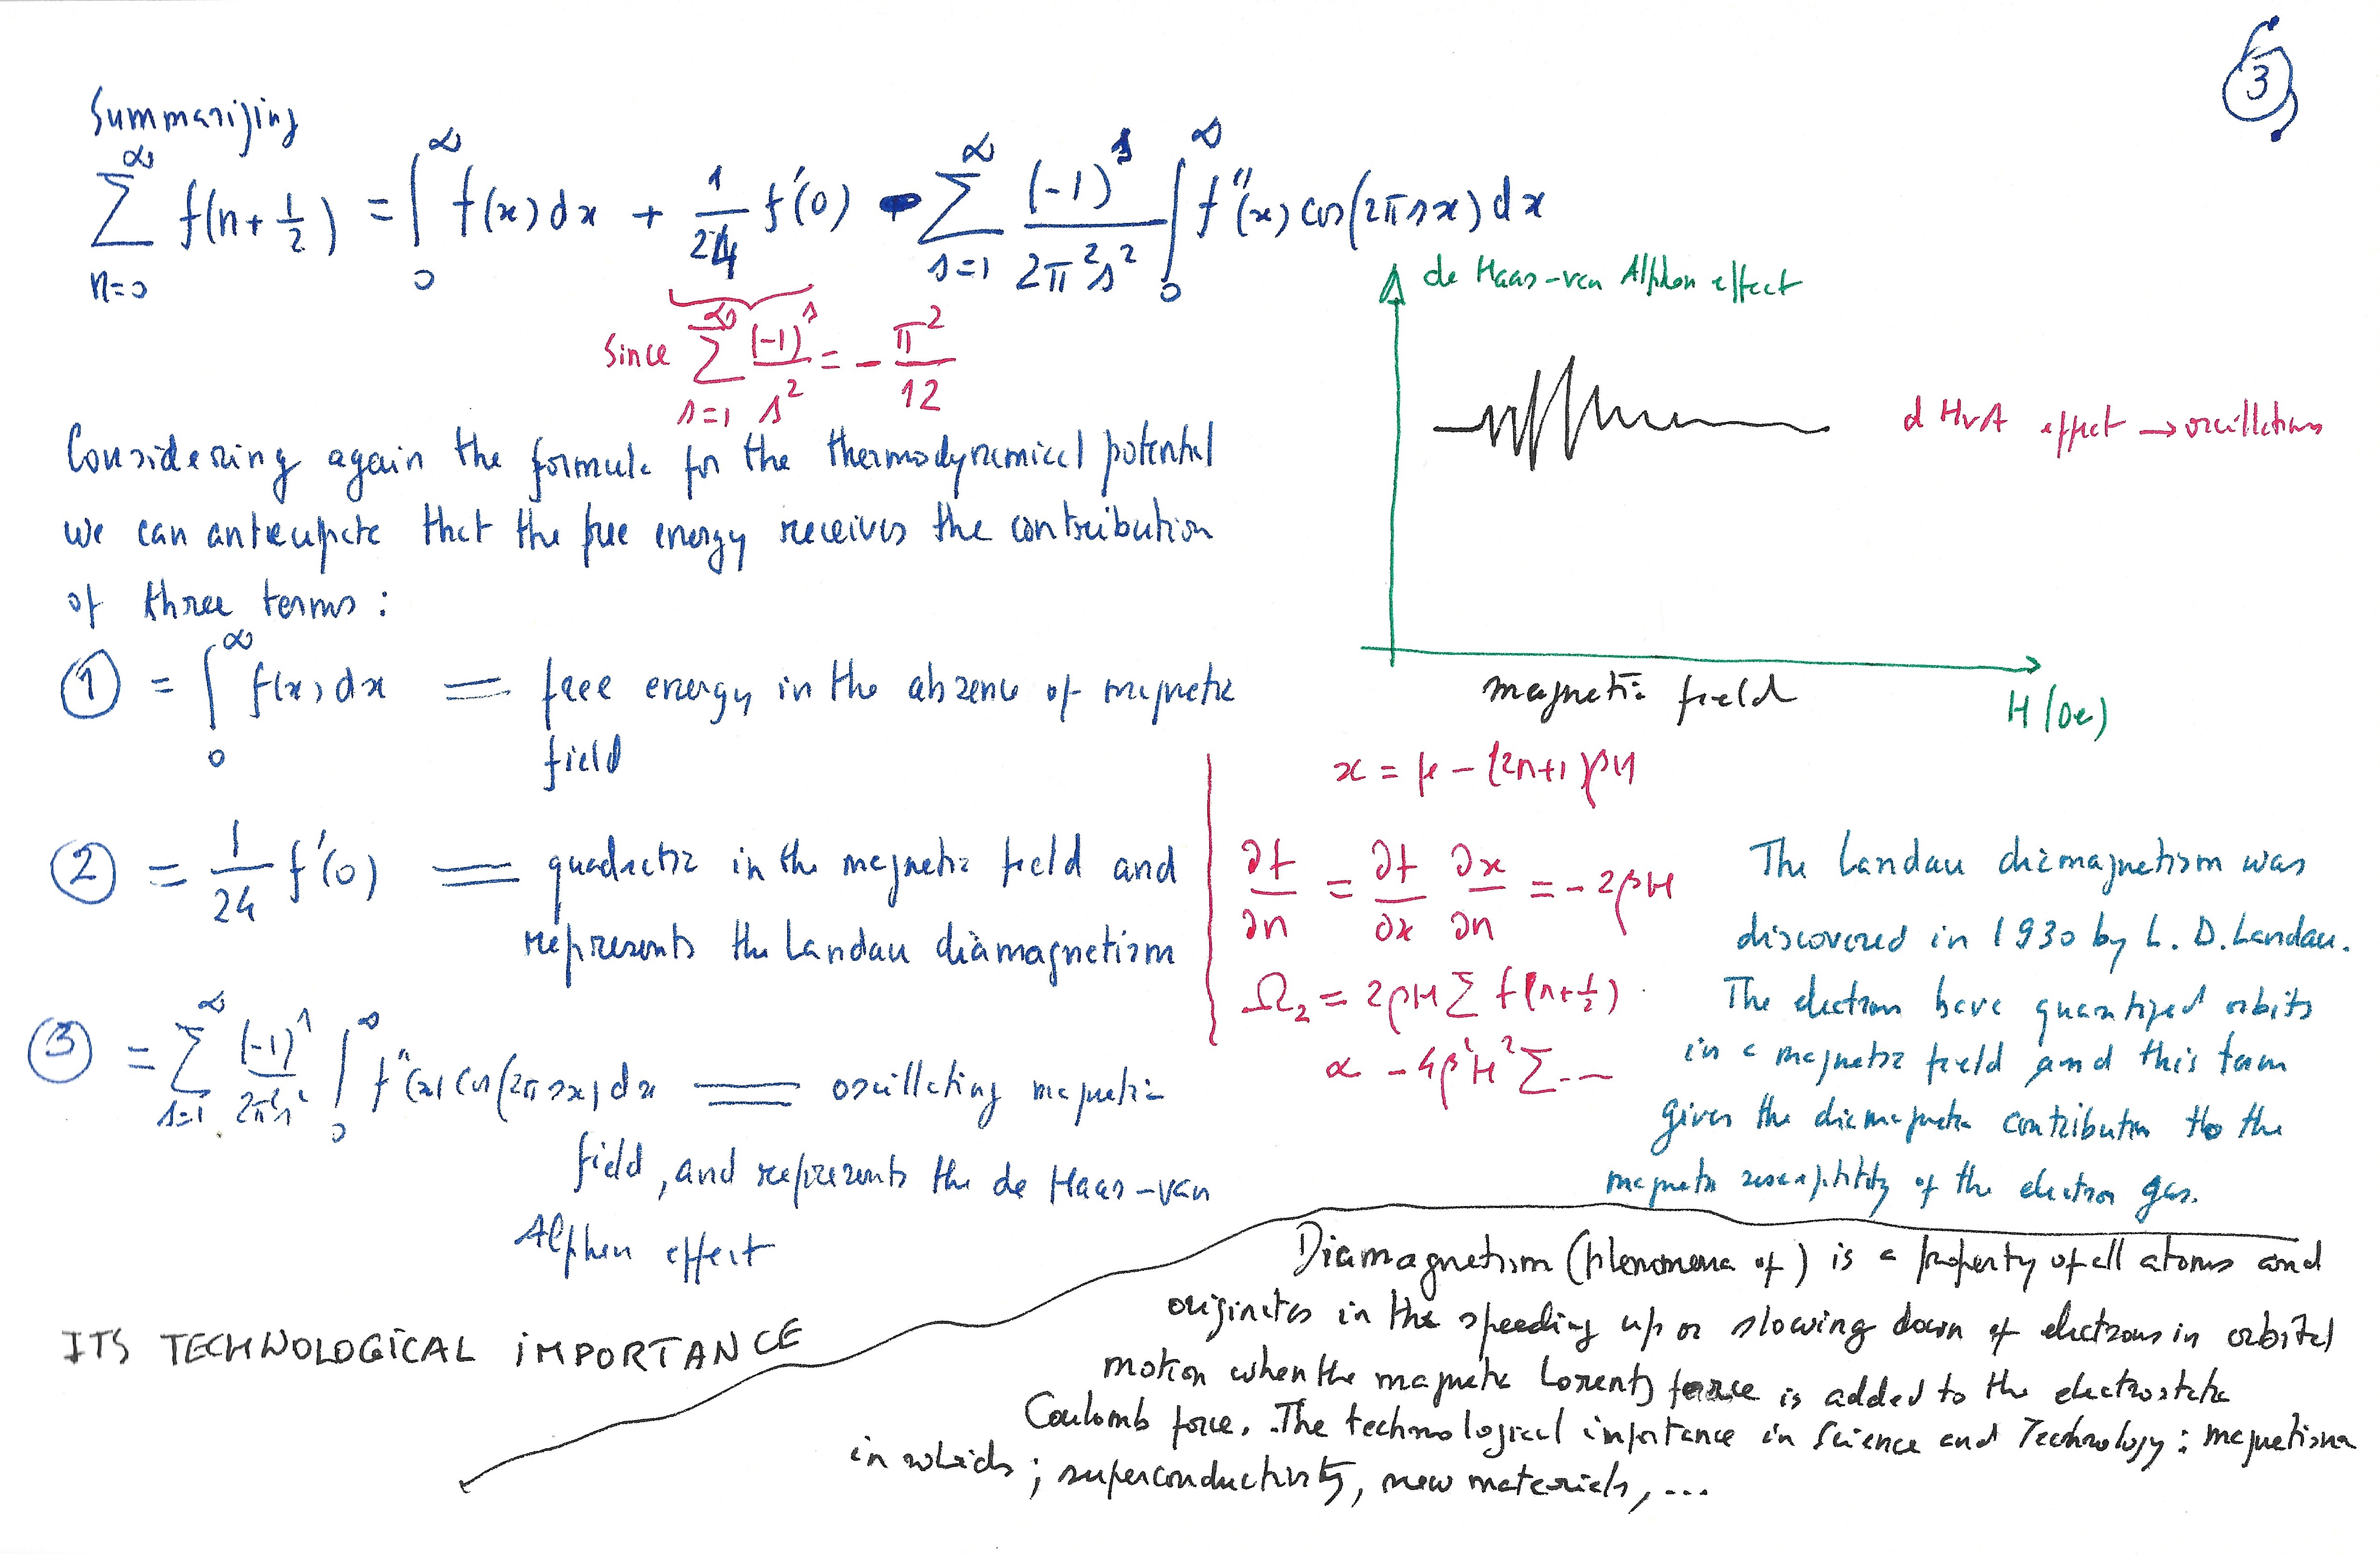 3
Summarizing
∑_{n=0}^{∞} f(n+½) = ∫_0^∞ f(x)dx + 1/24 f′(0) - ∑_{s=1}^{∞} (-1)^s/(2π²s²) ∫_0^∞ f″(x) cos(2πsx)dx
Since ∑_{s=1}^{∞} (-1)^s/s² = -π²/12
Considering again the formula for the thermodynamical potential
we can anticupate that the free energy receives the contribution
of three terms:
① = ∫_0^∞ f(x)dx = free energy in the absence of magnetic
field
② = 1/24 f′(0) = quadratic in the magnetic field and
represents the Landau diamagnetism
③ = ∑_{s=1}^{∞} (-1)^s/(2π²s²) ∫_0^∞ f″(x) cos(2πsx)dx = oscillating magnetic
field, and represents the de Haas-van
Alphen effect
de Haas-van Alphen effect
dHvA effect → oscillations
magnetic field
H(Oe)
x = μ - (2n+1)βH
∂f/∂n = ∂f/∂x ∂x/∂n = -2βH
Ω₂ = 2βH ∑ f(n+½)
∝ -4β²H² ∑ ...
The Landau diamagnetism was
discovered in 1930 by L. D. Landau.
The electron have quantized orbits
in a magnetic field and this term
gives the diamagnetic contribution to the
magnetic susceptibility of the electron gas.
ITS TECHNOLOGICAL IMPORTANCE
Diamagnetism (phenomena of) is a property of all atoms and
originates in the speeding up or slowing down of electrons in orbital
motion when the magnetic Lorentz force is added to the electrostatic
Coulomb force. The technological importance in Science and Technology: magnetism
in solids; superconductivity, new materials, ...